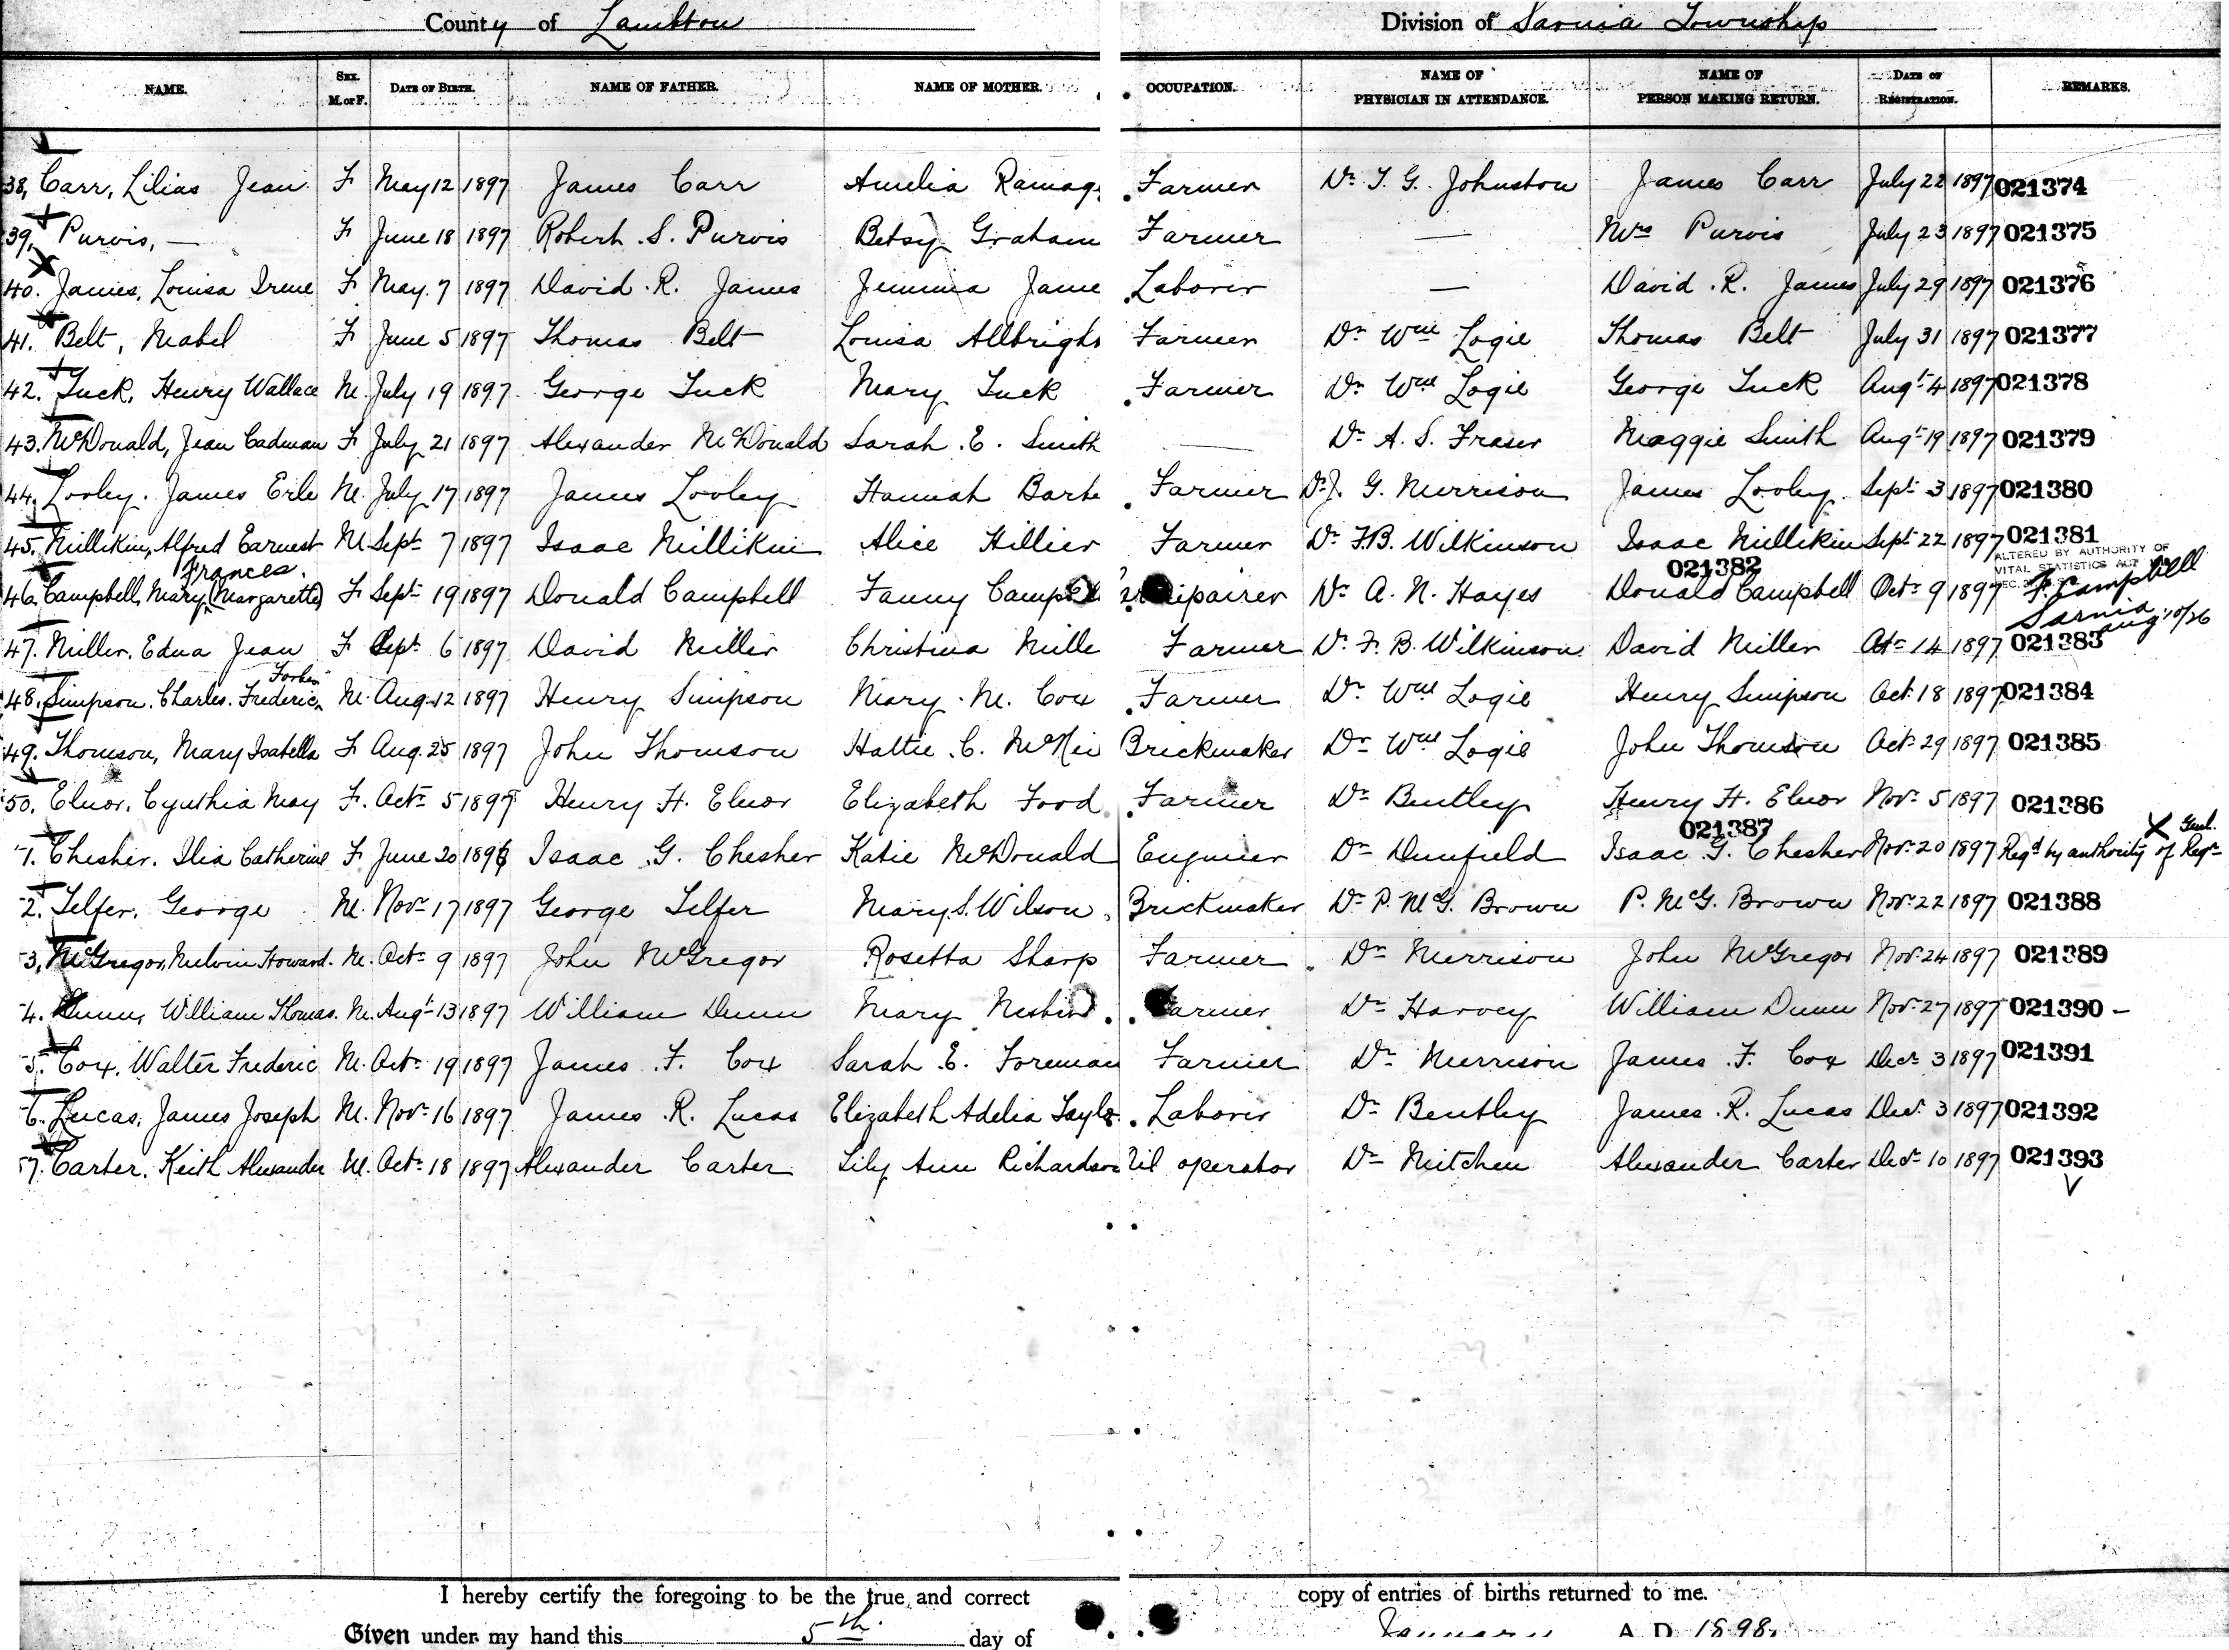 County of Lambton Division of Sarnia Township
NAME. SEX. M. or F. DATE OF BIRTH. NAME OF FATHER. NAME OF MOTHER. OCCUPATION. NAME OF PHYSICIAN IN ATTENDANCE. NAME OF PERSON MAKING RETURN. DATE OF REGISTRATION. REMARKS.
38, Carr, Lilias Jean F May 12 1897 James Carr Amelia Ramag Farmer Dr T. G. Johnston James Carr July 22 1897 021374
39, Purvis, — F June 18 1897 Robert S. Purvis Betsy Graham Farmer — Mrs Purvis July 23 1897 021375
40. James, Louisa Irene F May 7 1897 David R. James Jemima Jame Laborer — David R. James July 29 1897 021376
41. Belt, Mabel F June 5 1897 Thomas Belt Louisa Allbright Farmer Dr Wm Logie Thomas Belt July 31 1897 021377
42. Tuck, Henry Wallace M. July 19 1897 George Tuck Mary Tuck Farmer Dr Wm Logie George Tuck Augt 4 1897 021378
43. McDonald, Jean Cadman F July 21 1897 Alexander McDonald Sarah E. Smith — Dr A. S. Fraser Maggie Smith Augt 19 1897 021379
44. Looley. James Erle M. July 17 1897 James Looley Hannah Barbe Farmer Dr J. G. Merrison James Looley Sept 3 1897 021380
45. Millikin, Alfred Earnest M Sept 7 1897 Isaac Millikin Alice Hillier Farmer Dr F. B. Wilkinson Isaac Millikin Sept 22 1897 021381
Frances. 021382 ALTERED BY AUTHORITY OF
VITAL STATISTICS ACT
46. Campbell, Mary (Margarette) F Sept 19 1897 Donald Campbell Fanny Campbell ipairer Dr A. N. Hayes Donald Campbell Oct 9 1897 F. Campbell
Sarnia Aug 10/26
47. Miller. Edna Jean F Sept 6 1897 David Miller Christina Mille Farmer Dr F. B. Wilkinson David Miller Oct 14 1897 021383
Forbes
48. Simpson. Charles. Frederic M. Aug. 12 1897 Henry Simpson Mary M. Cox Farmer Dr Wm Logie Henry Simpson Oct 18 1897 021384
49. Thomson, Mary Isabella F Aug. 25 1897 John Thomson Hattie C. McNei Brickmaker Dr Wm Logie John Thomson Oct 29 1897 021385
50. Elnor, Cynthia May F. Oct 5 1897 Henry H. Elnor Elizabeth Food Farmer Dr Bentley Henry H. Elnor Nov 5 1897 021386
021387 X Genl.
1. Chesher. Ilia Catherine F June 20 1896 Isaac G. Chesher Katie McDonald Engineer Dr Dunfield Isaac G. Chesher Nov 20 1897 Regd by authority of Regr
2. Telfer. George M. Nov 17 1897 George Telfer Mary S. Wilson Brickmaker Dr P. McG. Brown P. McG. Brown Nov 22 1897 021388
3. McGregor, Melvin Howard. M. Oct 9 1897 John McGregor Rosetta Sharp Farmer Dr Merrison John McGregor Nov 24 1897 021389
4. Dunn, William Thomas. M. Augt 13 1897 William Dunn Mary Farmer Dr Harvey William Dunn Nov 27 1897 021390 –
5. Cox, Walter Frederic M. Oct 19 1897 James F. Cox Sarah E. Foreman Farmer Dr Merrison James F. Cox Dec 3 1897 021391
6. Lucas, James Joseph M. Nov 16 1897 James R. Lucas Elizabeth Adelia Taylo Laborer Dr Bentley James R. Lucas Dec 3 1897 021392
7. Carter, Keith Alexander M. Oct 18 1897 Alexander Carter Lily Ann Richardson Oil operator Dr Mitchell Alexander Carter Dec 10 1897 021393
I hereby certify the foregoing to be the true and correct copy of entries of births returned to me.
Given under my hand this 5th day of January A. D. 1898.